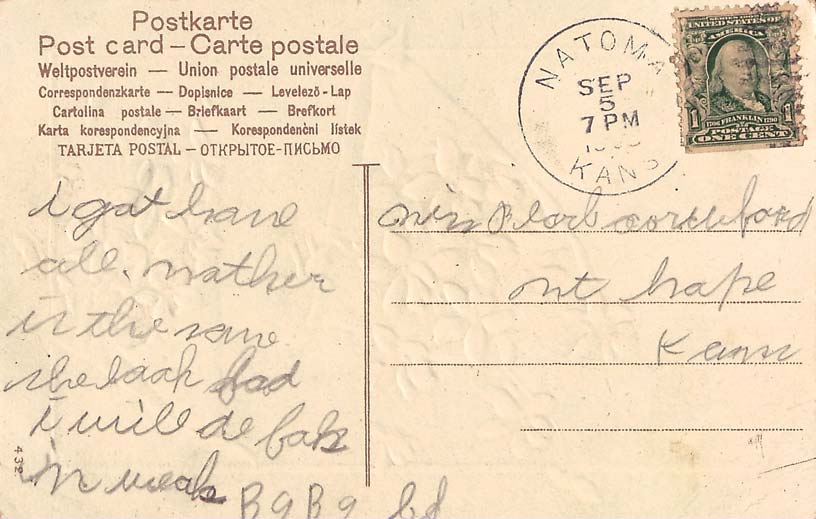 Postkarte
Post card – Carte postale
Weltpostverein — Union postale universelle
Correspondenzkarte — Dopisnice — Levelező-Lap
Cartolina postale — Briefkaart — Brefkort
Karta korespondencyjna — Korespondenční lístek
TARJETA POSTAL – ОТКРЫТОЕ-ПИСЬМО
NATOMA
SEP
5
7 PM
KANS
SERIES 1902
UNITED STATES OF
AMERICA
1 1
1706 FRANKLIN 1790
POSTAGE
ONE CENT
i gat hane
all. mather
is the same
she look bad
i will de bak
in weak
B9B9
miss Pearl
mt hape
Kann
432